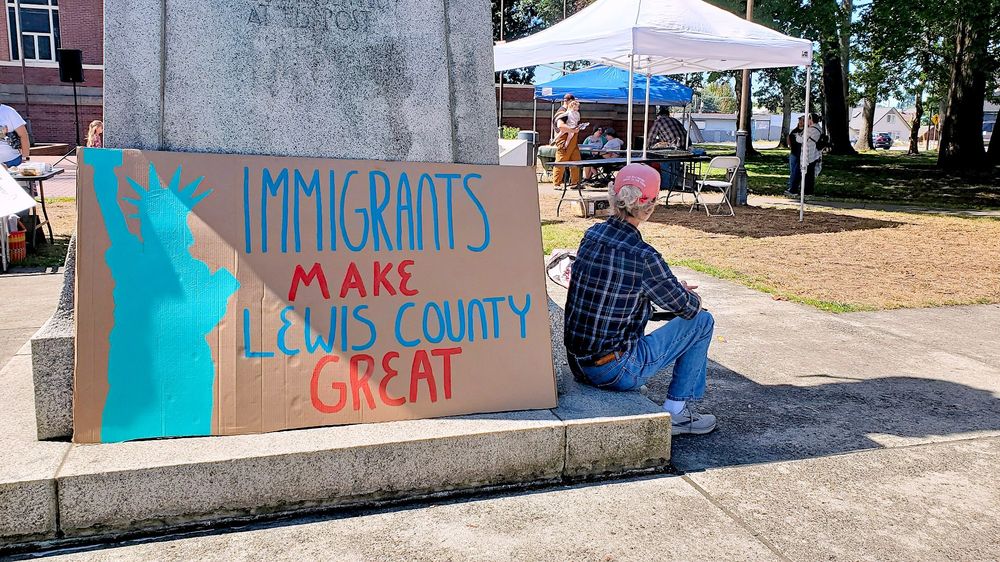 AT HIS POST
IMMIGRANTS
MAKE
LEWIS COUNTY
GREAT